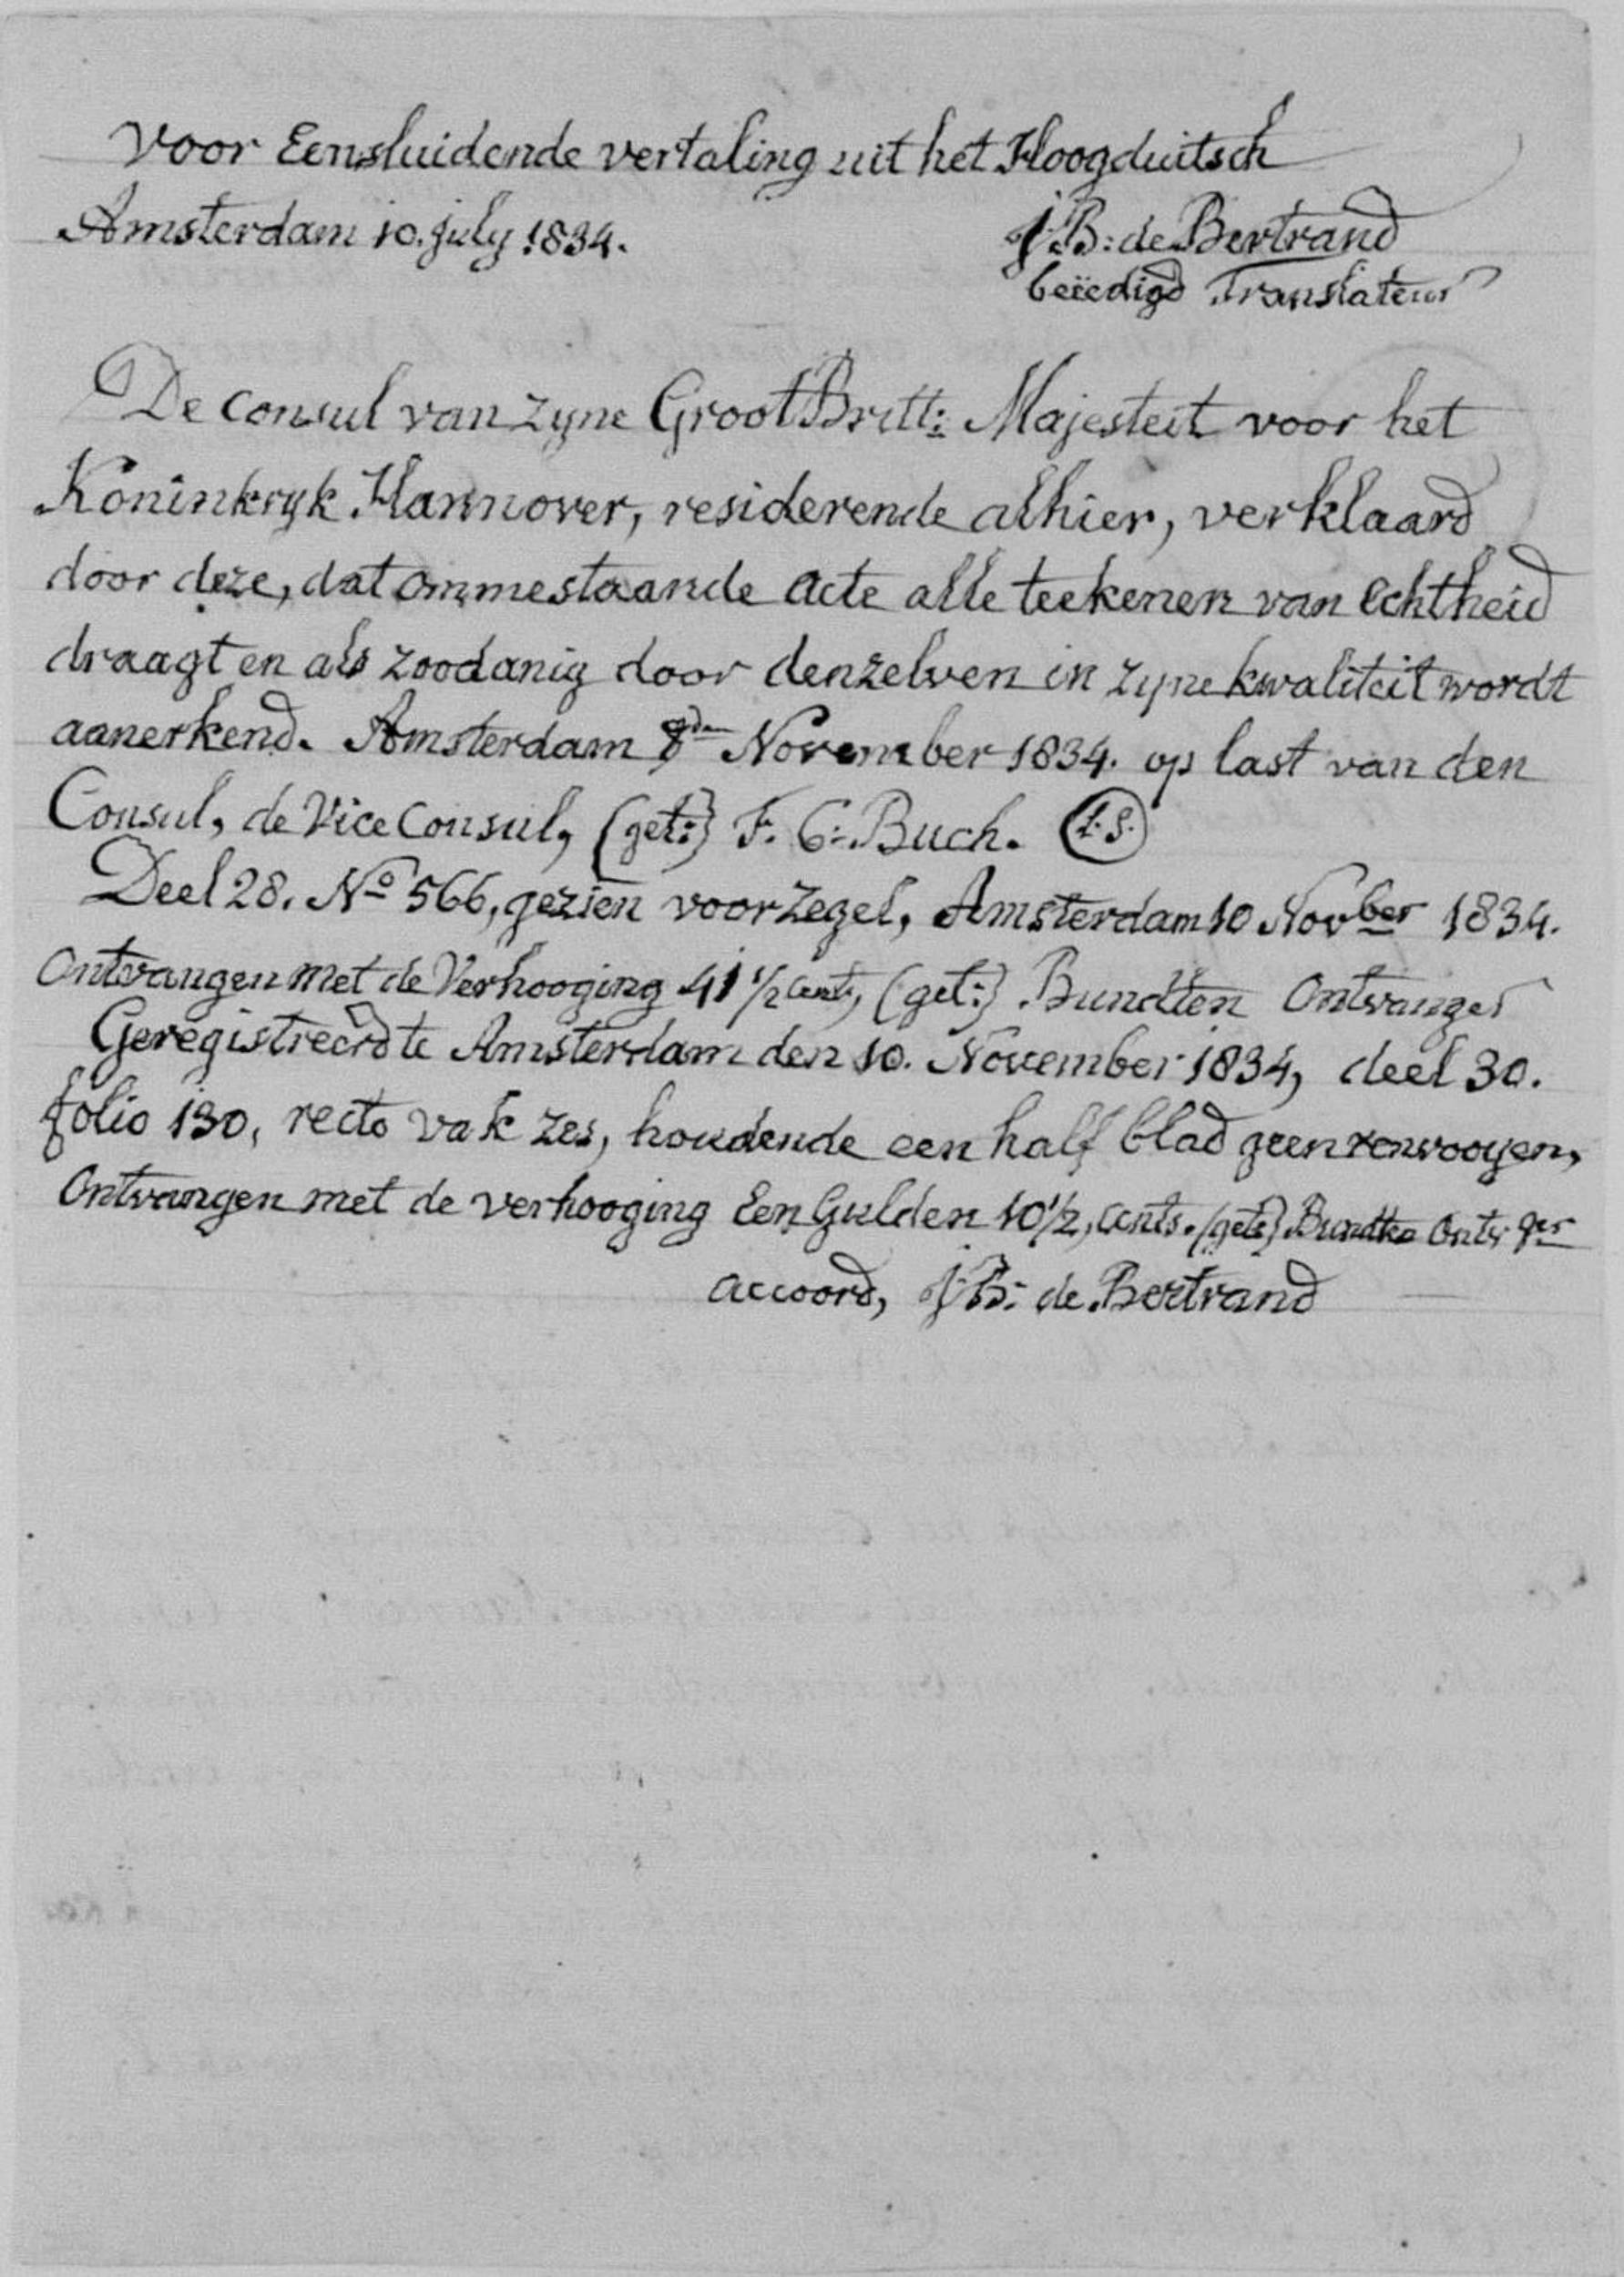 Voor Eensluidende vertaling uit het Hoogduitsch
Amsterdam 10. july 1834. J:B: de Bertrand
beëedigd Translateur
De Consul van zyne Groot Britt: Majesteit voor het
Koninkryk Hannover, residerende alhier, verklaard
door deze, dat ommestaande acte alle teekenen van Echtheid
draagt en als zoodanig door denzelven in zyne kwaliteit wordt
aanerkend. Amsterdam 8den November 1834. op last van den
Consul, de Vice Consul, (get:) F. C: Buch. L.S.
Deel 28. No 566, gezien voor zegel, Amsterdam 10 Novber 1834.
Ontvangen met de Verhooging 41 1/2 Cents, (get:) Bundten Ontvanger
Geregistreerd te Amsterdam den 10. November 1834, deel 30.
folio 130, recto vak zes, houdende een half blad geen renvooyen,
Ontvangen met de verhooging Een Gulden 10 1/2, cents. (get:) Ontv: ger
accoord, J:B: de Bertrand